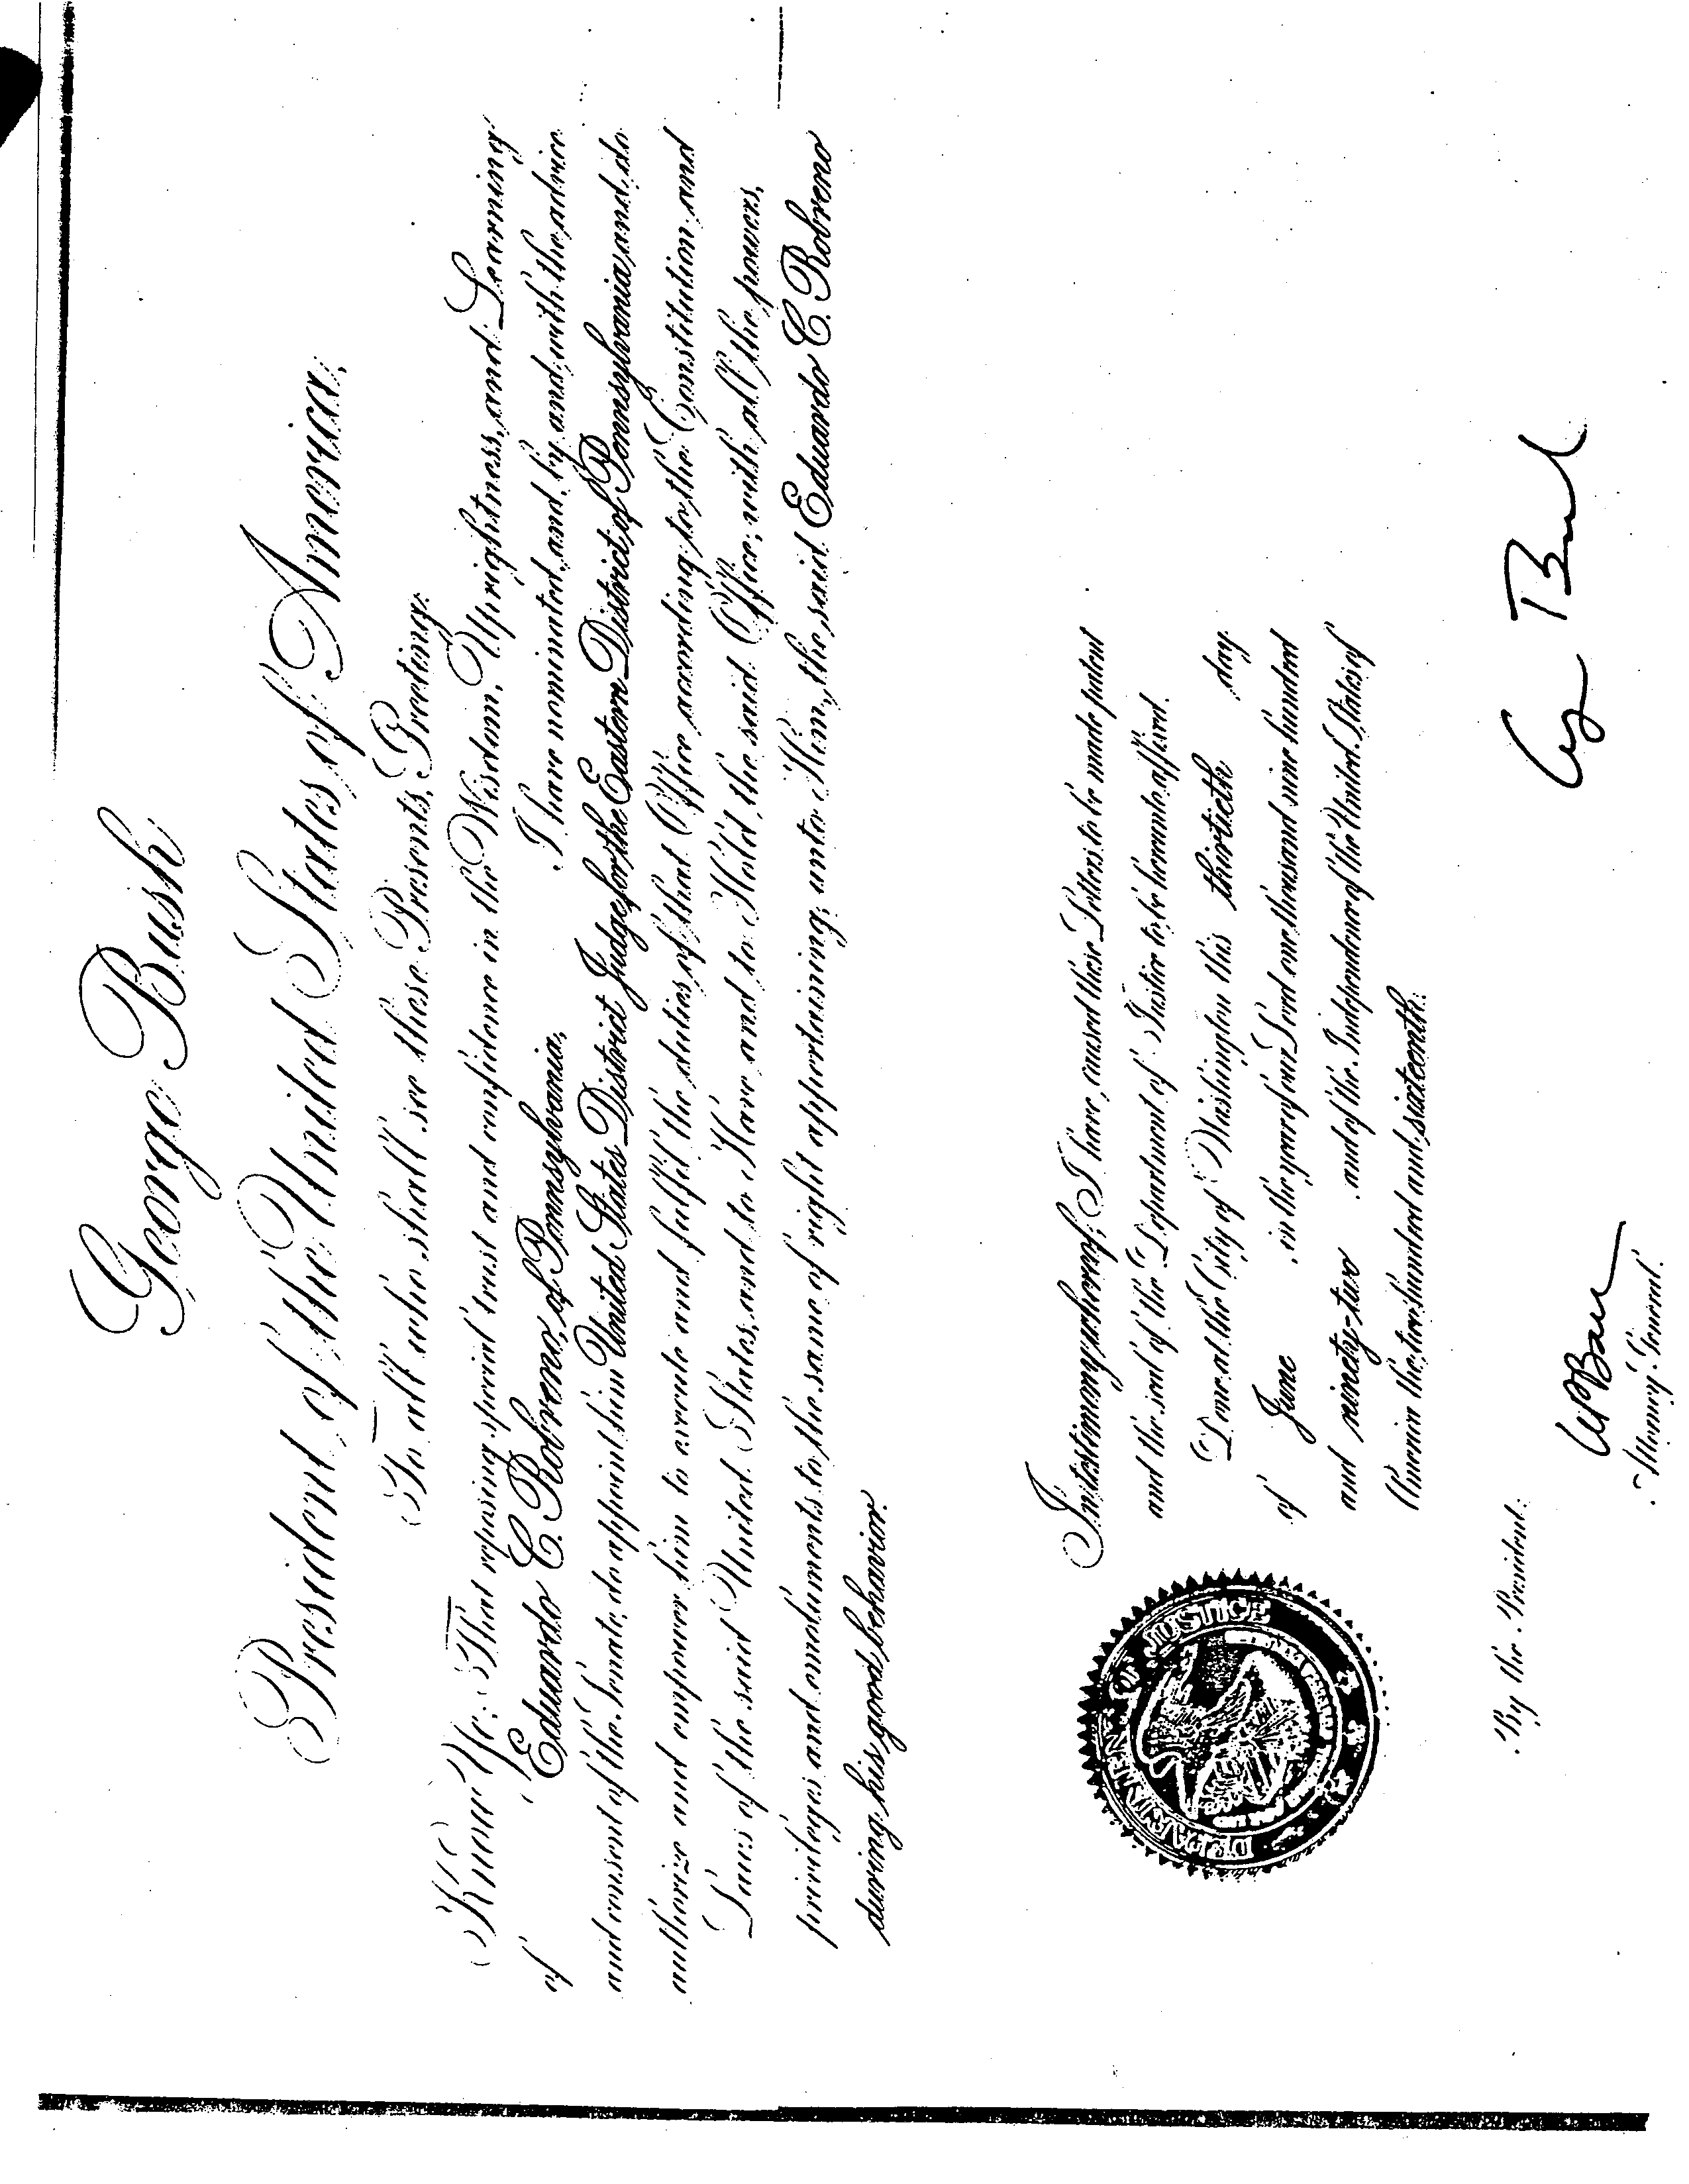 George Bush
President of the United States of America,
To all who shall see these Presents, Greeting:
Know Ye; That reposing special trust and confidence in the Wisdom, Uprightness, and Learning
of Eduardo C. Robreno, of Pennsylvania, I have nominated, and, by and with the advice
and consent of the Senate, do appoint him United States District Judge for the Eastern District of Pennsylvania, and do
authorize and empower him to execute and fulfil the duties of that Office according to the Constitution and
Laws of the said United States, and to Have and to Hold the said Office, with all the powers,
privileges and emoluments to the same of right appertaining, unto Him, the said Eduardo C. Robreno
during his good behavior.
In testimony whereof, I have caused these Letters to be made patent
and the seal of the Department of Justice to be hereunto affixed.
Done at the City of Washington this thirtieth day
of June in the year of our Lord one thousand nine hundred
and ninety-two and of the Independence of the United States of
America the two hundred and sixteenth.
DEPARTMENT OF JUSTICE
By the President:
Attorney General.